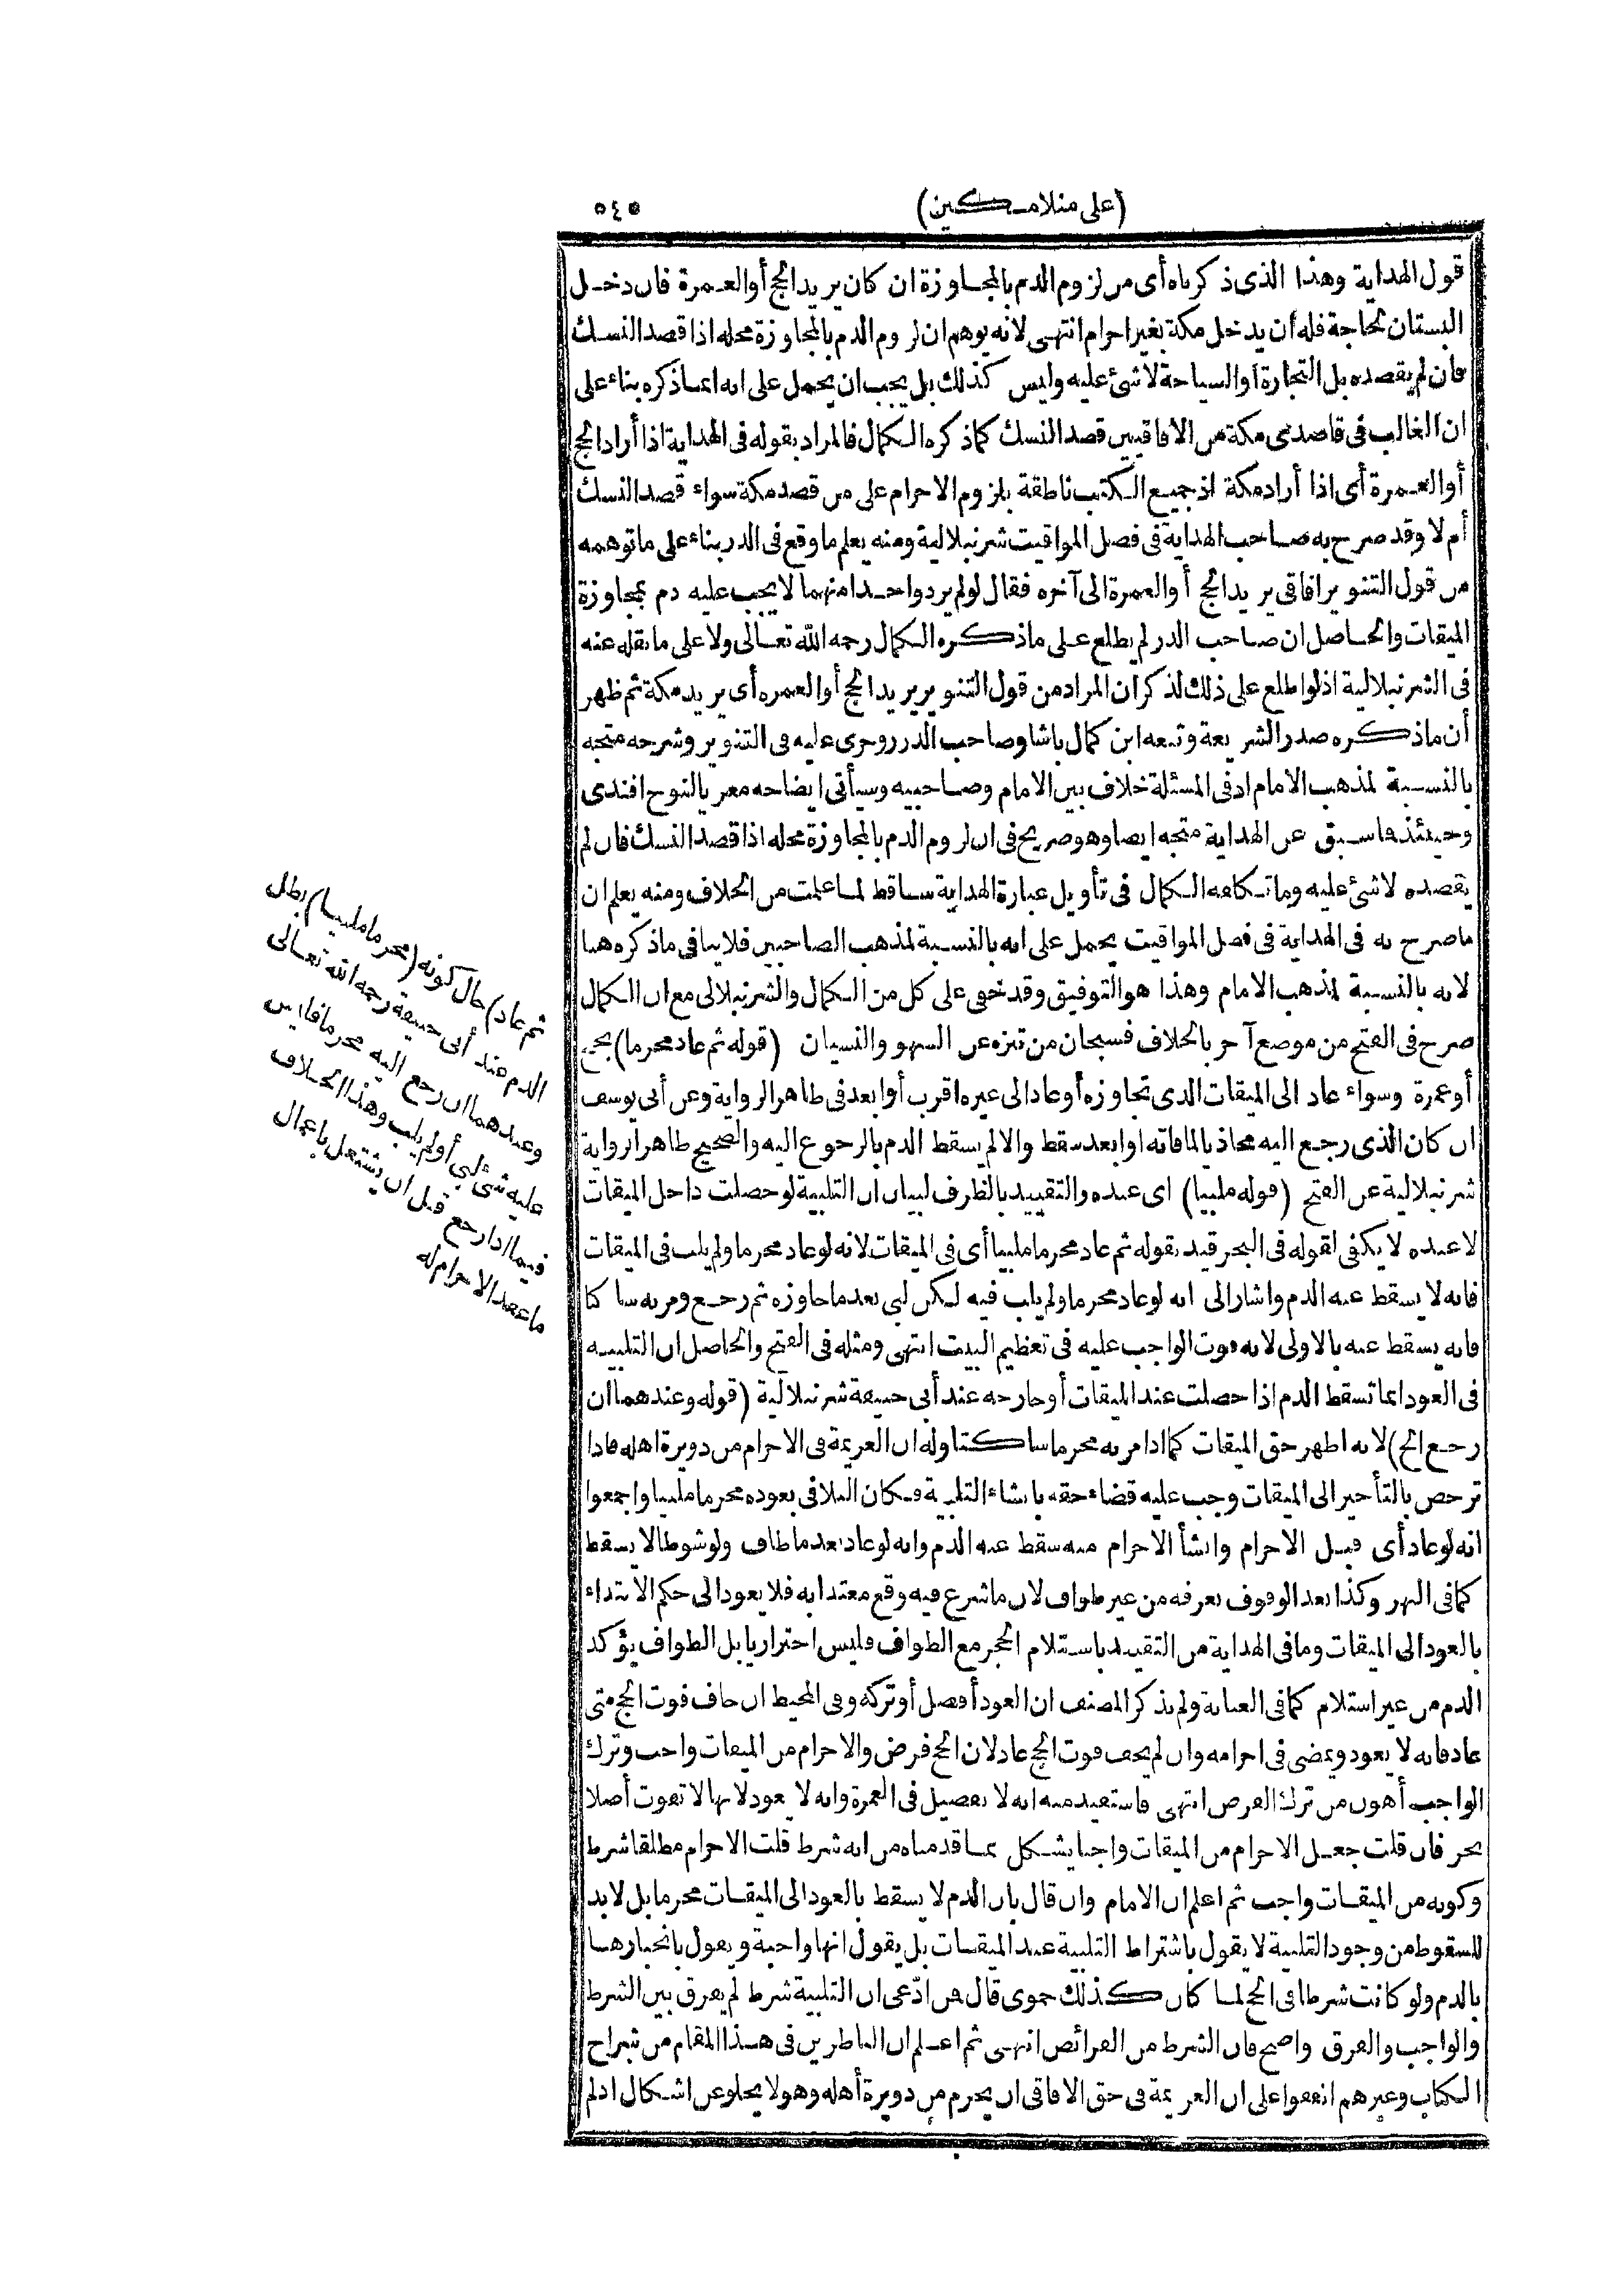 (على منلا مسكين)
٥٤٥
قول الهداية وهذا الذى ذكرناه أى من لزوم الدم بالمجاوزة ان كان يريد الحج أو العمرة فان دخل
البستان لحاجة فله أن يدخل مكة بغير احرام انتهى لانه يوهم ان لزوم الدم بالمجاوزة محله اذا قصد النسك
فان لم يقصده بل التجارة أو السياحة لا شئ عليه وليس كذلك بل يجب ان يحمل على انه انما ذكره بناء على
ان الغالب فى قاصدى مكة من الافاقيين قصد النسك كما ذكره الكمال فالمراد بقوله فى الهداية اذا أراد الحج
أو العمرة أى اذا أراد مكة اذ جميع الكتب ناطقة بلزوم الاحرام على من قصد مكة سواء قصد النسك
أم لا وقد صرح به صاحب الهداية فى فصل المواقيت شرنبلالية ومنه يعلم ما وقع فى الدر بناء على ما توهمه
من قول التنوير افاقى يريد الحج أو العمرة الى آخره فقال لو لم يرد واحدا منهما لا يجب عليه دم بمجاوزة
الميقات والحاصل ان صاحب الدر لم يطلع على ما ذكره الكمال رحمه الله تعالى ولا على ما نقله عنه
فى الشرنبلالية اذ لو اطلع على ذلك لذكر ان المراد من قول التنوير يريد الحج أو العمره أى يريد مكة ثم ظهر
أن ما ذكره صدر الشريعة وتبعه ابن كمال باشا وصاحب الدرر وجرى عليه فى التنوير وشرحه متجه
بالنسبة لمذهب الامام اذ فى المسئلة خلاف بين الامام وصاحبيه وسيأتى ايضاحه معزيا لنوح افندى
وحينئذ فما سبق عن الهداية متجه ايضا وهو صريح فى ان لزوم الدم بالمجاوزة محله اذا قصد النسك فان لم
يقصده لا شئ عليه وما تكلفه الكمال فى تأويل عبارة الهداية ساقط لما علمت من الخلاف ومنه يعلم ان
ما صرح به فى الهداية فى فصل المواقيت يحمل على انه بالنسبة لمذهب الصاحبين فلا ينافى ما ذكره هنا
لانه بالنسبة لمذهب الامام وهذا هو التوفيق وقد خفى على كل من الكمال والشرنبلالى مع ان الكمال
صرح فى الفتح من موضع آخر بالخلاف فسبحان من تنزه عن السهو والنسيان (قوله ثم عاد محرما) بحج
أو عمرة وسواء عاد الى الميقات الذى تجاوزه أو عاد الى غيره اقرب أو ابعد فى ظاهر الرواية وعن أبى يوسف
ان كان الذى رجع اليه محاذيا لما فاته او ابعد سقط والا لم يسقط الدم بالرجوع اليه والصحيح ظاهر الرواية
شرنبلالية عن الفتح (قوله ملبيا) اى عنده والتقييد بالظرف لبيان ان التلبية لو حصلت داخل الميقات
لا عنده لا يكفى لقوله فى البحر قيد بقوله ثم عاد محرما ملبيا أى فى الميقات لانه لو عاد محرما ولم يلب فى الميقات
فانه لا يسقط عنه الدم واشار الى انه لو عاد محرما ولم يلب فيه لكن لبى بعد ما جاوزه ثم رجع ومر به ساكتا
فانه يسقط عنه بالاولى لانه فوت الواجب عليه فى تعظيم البيت انتهى ومثله فى الفتح والحاصل ان التلبيه
فى العود انما تسقط الدم اذا حصلت عند الميقات أو خارجه عند أبى حنيفة شرنبلالية (قوله وعندهما ان
رجع الخ) لانه اظهر حق الميقات كما اذا مر به محرما ساكتا وله ان العزيمة فى الاحرام من دويرة اهله فاذا
ترخص بالتأخير الى الميقات وجب عليه قضاء حقه بانشاء التلبية فكان التلافى بعوده محرما ملبيا واجمعوا
انه لو عاد أى قبل الاحرام وانشأ الاحرام منه سقط عنه الدم وانه لو عاد بعد ما طاف ولو شوطا لا يسقط
كما فى النهر وكذا بعد الوقوف بعرفه من غير طواف لان ما شرع فيه وقع معتدا به فلا يعود الى حكم الابتداء
بالعود الى الميقات وما فى الهداية من التقييد باستلام الحجر مع الطواف فليس احترازيا بل الطواف يؤكد
الدم من غير استلام كما فى العناية ولم يذكر المصنف ان العود أفضل أو تركه وفى المحيط ان خاف فوت الحج متى
عاد فانه لا يعود ويمضى فى احرامه وان لم يخف فوت الحج عاد لان الحج فرض والاحرام من الميقات واجب وترك
الواجب أهون من ترك الفرض انتهى فاستفيد منه انه لا تفصيل فى العمرة وانه لا يعود لانها لا تفوت أصلا
بحر فان قلت جعل الاحرام من الميقات واجبا يشكل بما قدمناه من انه شرط قلت الاحرام مطلقا شرط
وكونه من الميقات واجب ثم اعلم ان الامام وان قال بان الدم لا يسقط بالعود الى الميقات محرما بل لا بد
للسقوط من وجود التلبية لا يقول باشتراط التلبية عند الميقات بل يقول انها واجبة ويقول بانجبارها
بالدم ولو كانت شرطا فى الحج لما كان كذلك حموى قال من ادّعى ان التلبية شرط لم يفرق بين الشرط
والواجب والفرق واضح فان الشرط من الفرائض انتهى ثم اعلم ان الناظرين فى هذا المقام من شراح
الكتاب وغيرهم اتفقوا على ان العزيمة فى حق الافاقى ان يحرم من دويرة أهله وهو لا يخلو عن اشكال اذ لم
ثم عاد) حال كونه (محرما ملبيا) بطل
الدم عند أبى حنيفة رحمه الله تعالى
وعندهما ان رجع اليه محرما فليس
عليه شئ لبى أو لم يلب وهذا الخلاف
فيما اذا رجع قبل ان يشتغل باعمال
ما عقد الاحرام له